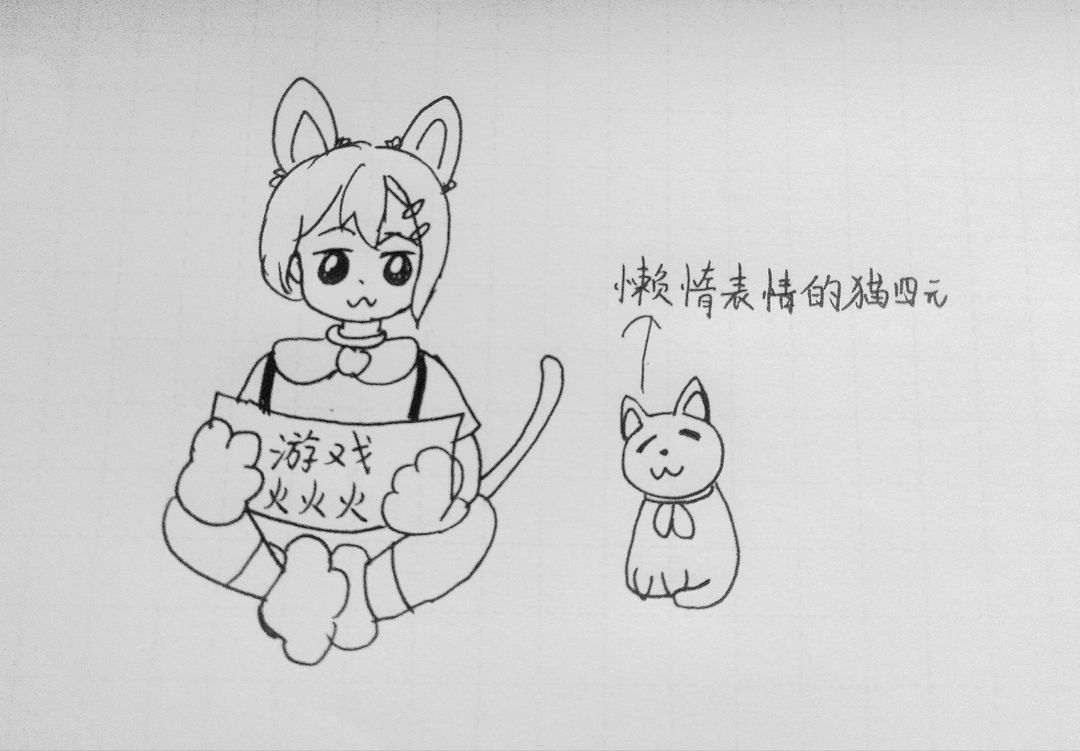 游戏
火火火
懒惰表情的猫四元